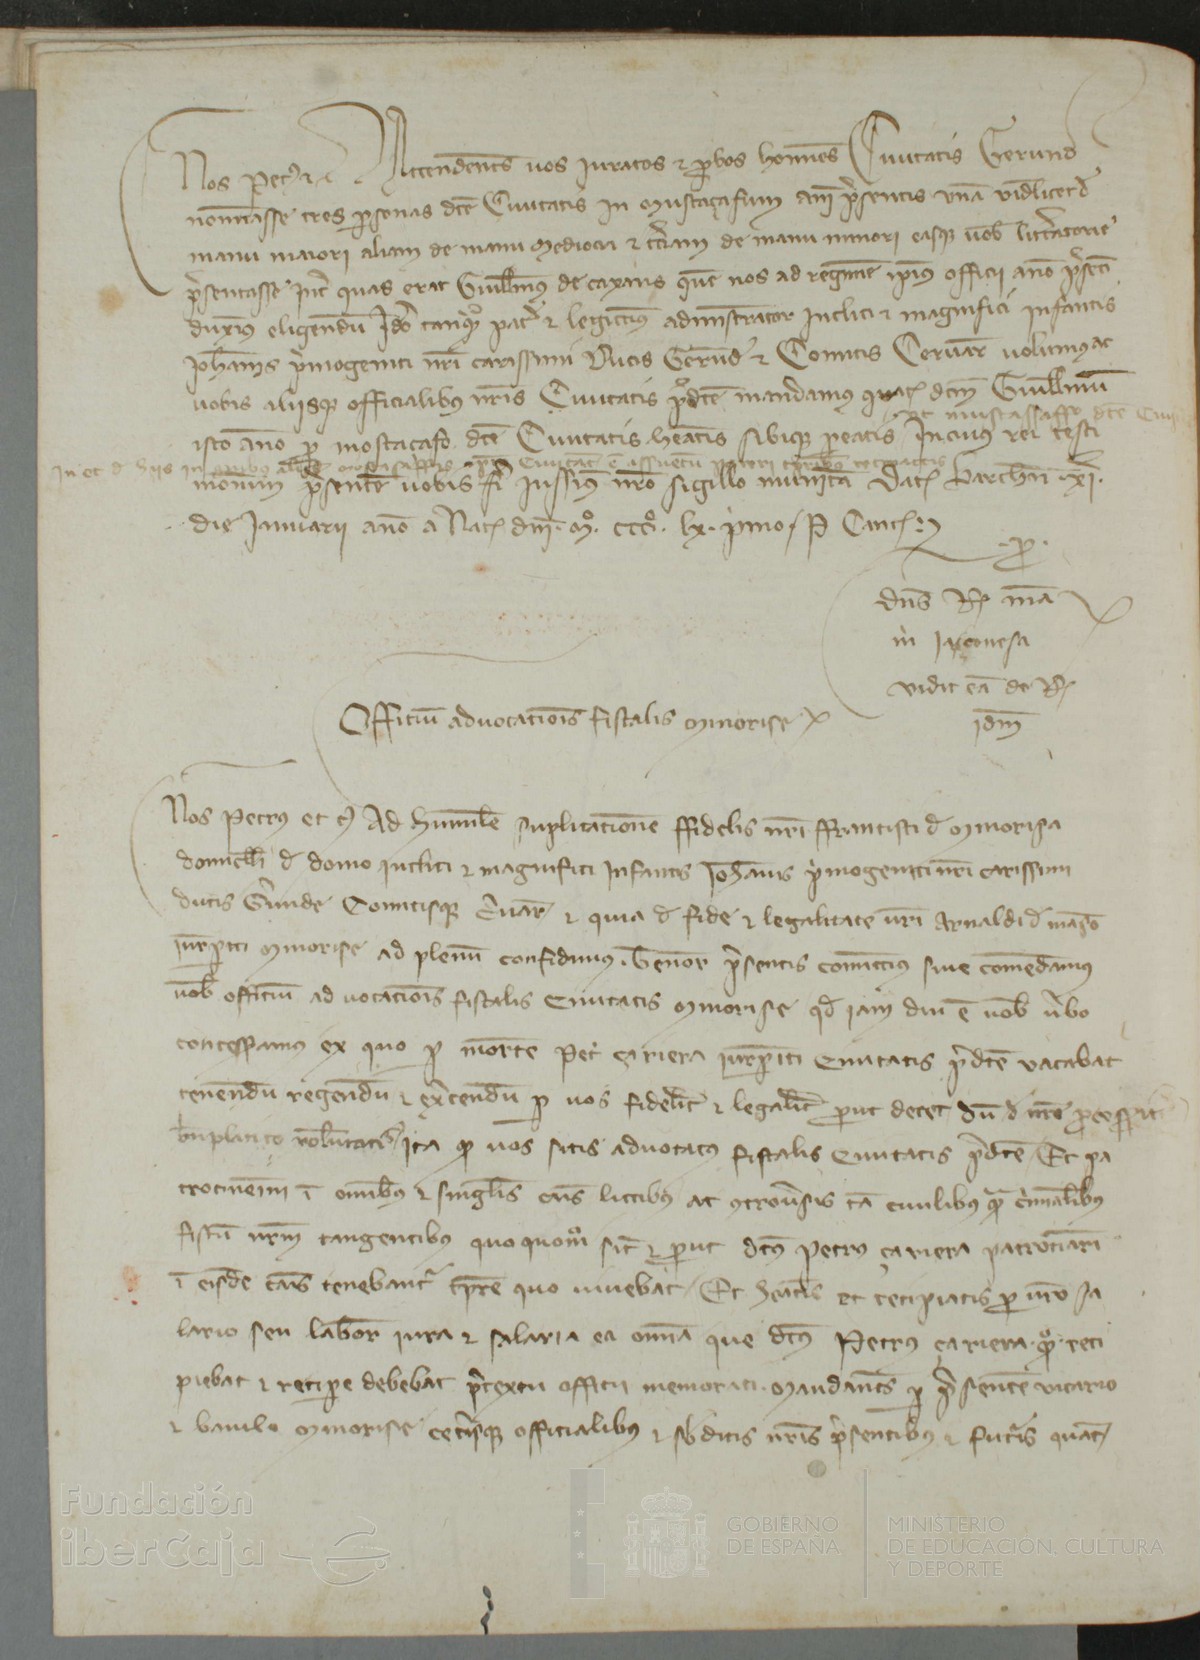 Nos Petrus &c Attendentes vos Iuratos & probos homines Civitatis Gerunde
nominasse tres personas dicte Civitatis in Mustaçafum anni presentis unam videlicet de
manu maiori aliam de manu mediocri & terciam de manu minori easque vobis litteratorie
presentasse inter quas erat Guillelmus de caxans quem nos ad regimen ipsius officii anno presenti
duximus eligendum Ideo tanquam pater & legitimus administrator Incliti & magnifici infantis
Iohannis primogeniti nostri carissimi Ducis Gerunde & Comitis Cervarie volumus ac
vobis aliisque officialibus nostris Civitatis predicte mandamus quatenus dictum Guillelmum
isto anno pro mostaçafo dicte Civitatis habeatis sibique pareatis
ut mustassaffo dicte
In cuius rei testi
monium presentem vobis fieri iussimus nostro sigillo munitam Datum Barchinone xi
die Ianuarii anno a Nativitate domini Mo CCCo lx primo P Cancellarius
p
dominus Rex mandavit
michi Iacobo
vidit eam dominus Rex
idem
Officium advocationis fiscalis Minorise
Nos Petrus et c Ad humilem suplicationem ffidelis nostri ffrancisci de Minorisa
domicelli de domo incliti & magnifici Infantis Iohannis primogeniti nostri carissimi
ducis Gerunde Comitisque Cervarie & quia de fide & legalitate vestri Arnaldi de
iurisperiti Minorise ad plenum confidimus tenore presentis comittimus sive comendamus
vobis officium advocationis fiscalis Civitatis Minorise quod iam diu est vobis verbo
concesseramus ex quo per mortem Petri çariera iurisperiti Civitatis predicte vacabat
tenendum regendum & exercendum per vos fideliter & legaliter prout decet dum de nostre processerit
beneplacito voluntatis Ita quod vos sitis advocatus fiscalis Civitatis predicte Et pa
trocinemini in omnibus & singulis causis littibus ac controversiis tam civilibus quam criminalibus
fiscum nostrum tangentibus quoquomodo sicut & prout dictus Petrus çariera patrocinari
in eisdem causis tenebantur tempore quo vivebat Et habeatis et recipiatis pro vestro sa
lario seu labore iura & salaria ea omnia que dictus Petrus çariera pro reci
piebat & recipere debebat pretextu officii memorati Mandantes per presentem vicario
& baiulo Minorise ceterisque officialibus & subditis nostris presentibus & futuris quatenus
Fundación
iberCaja
GOBIERNO
DE ESPAÑA
MINISTERIO
DE EDUCACIÓN, CULTURA
Y DEPORTE